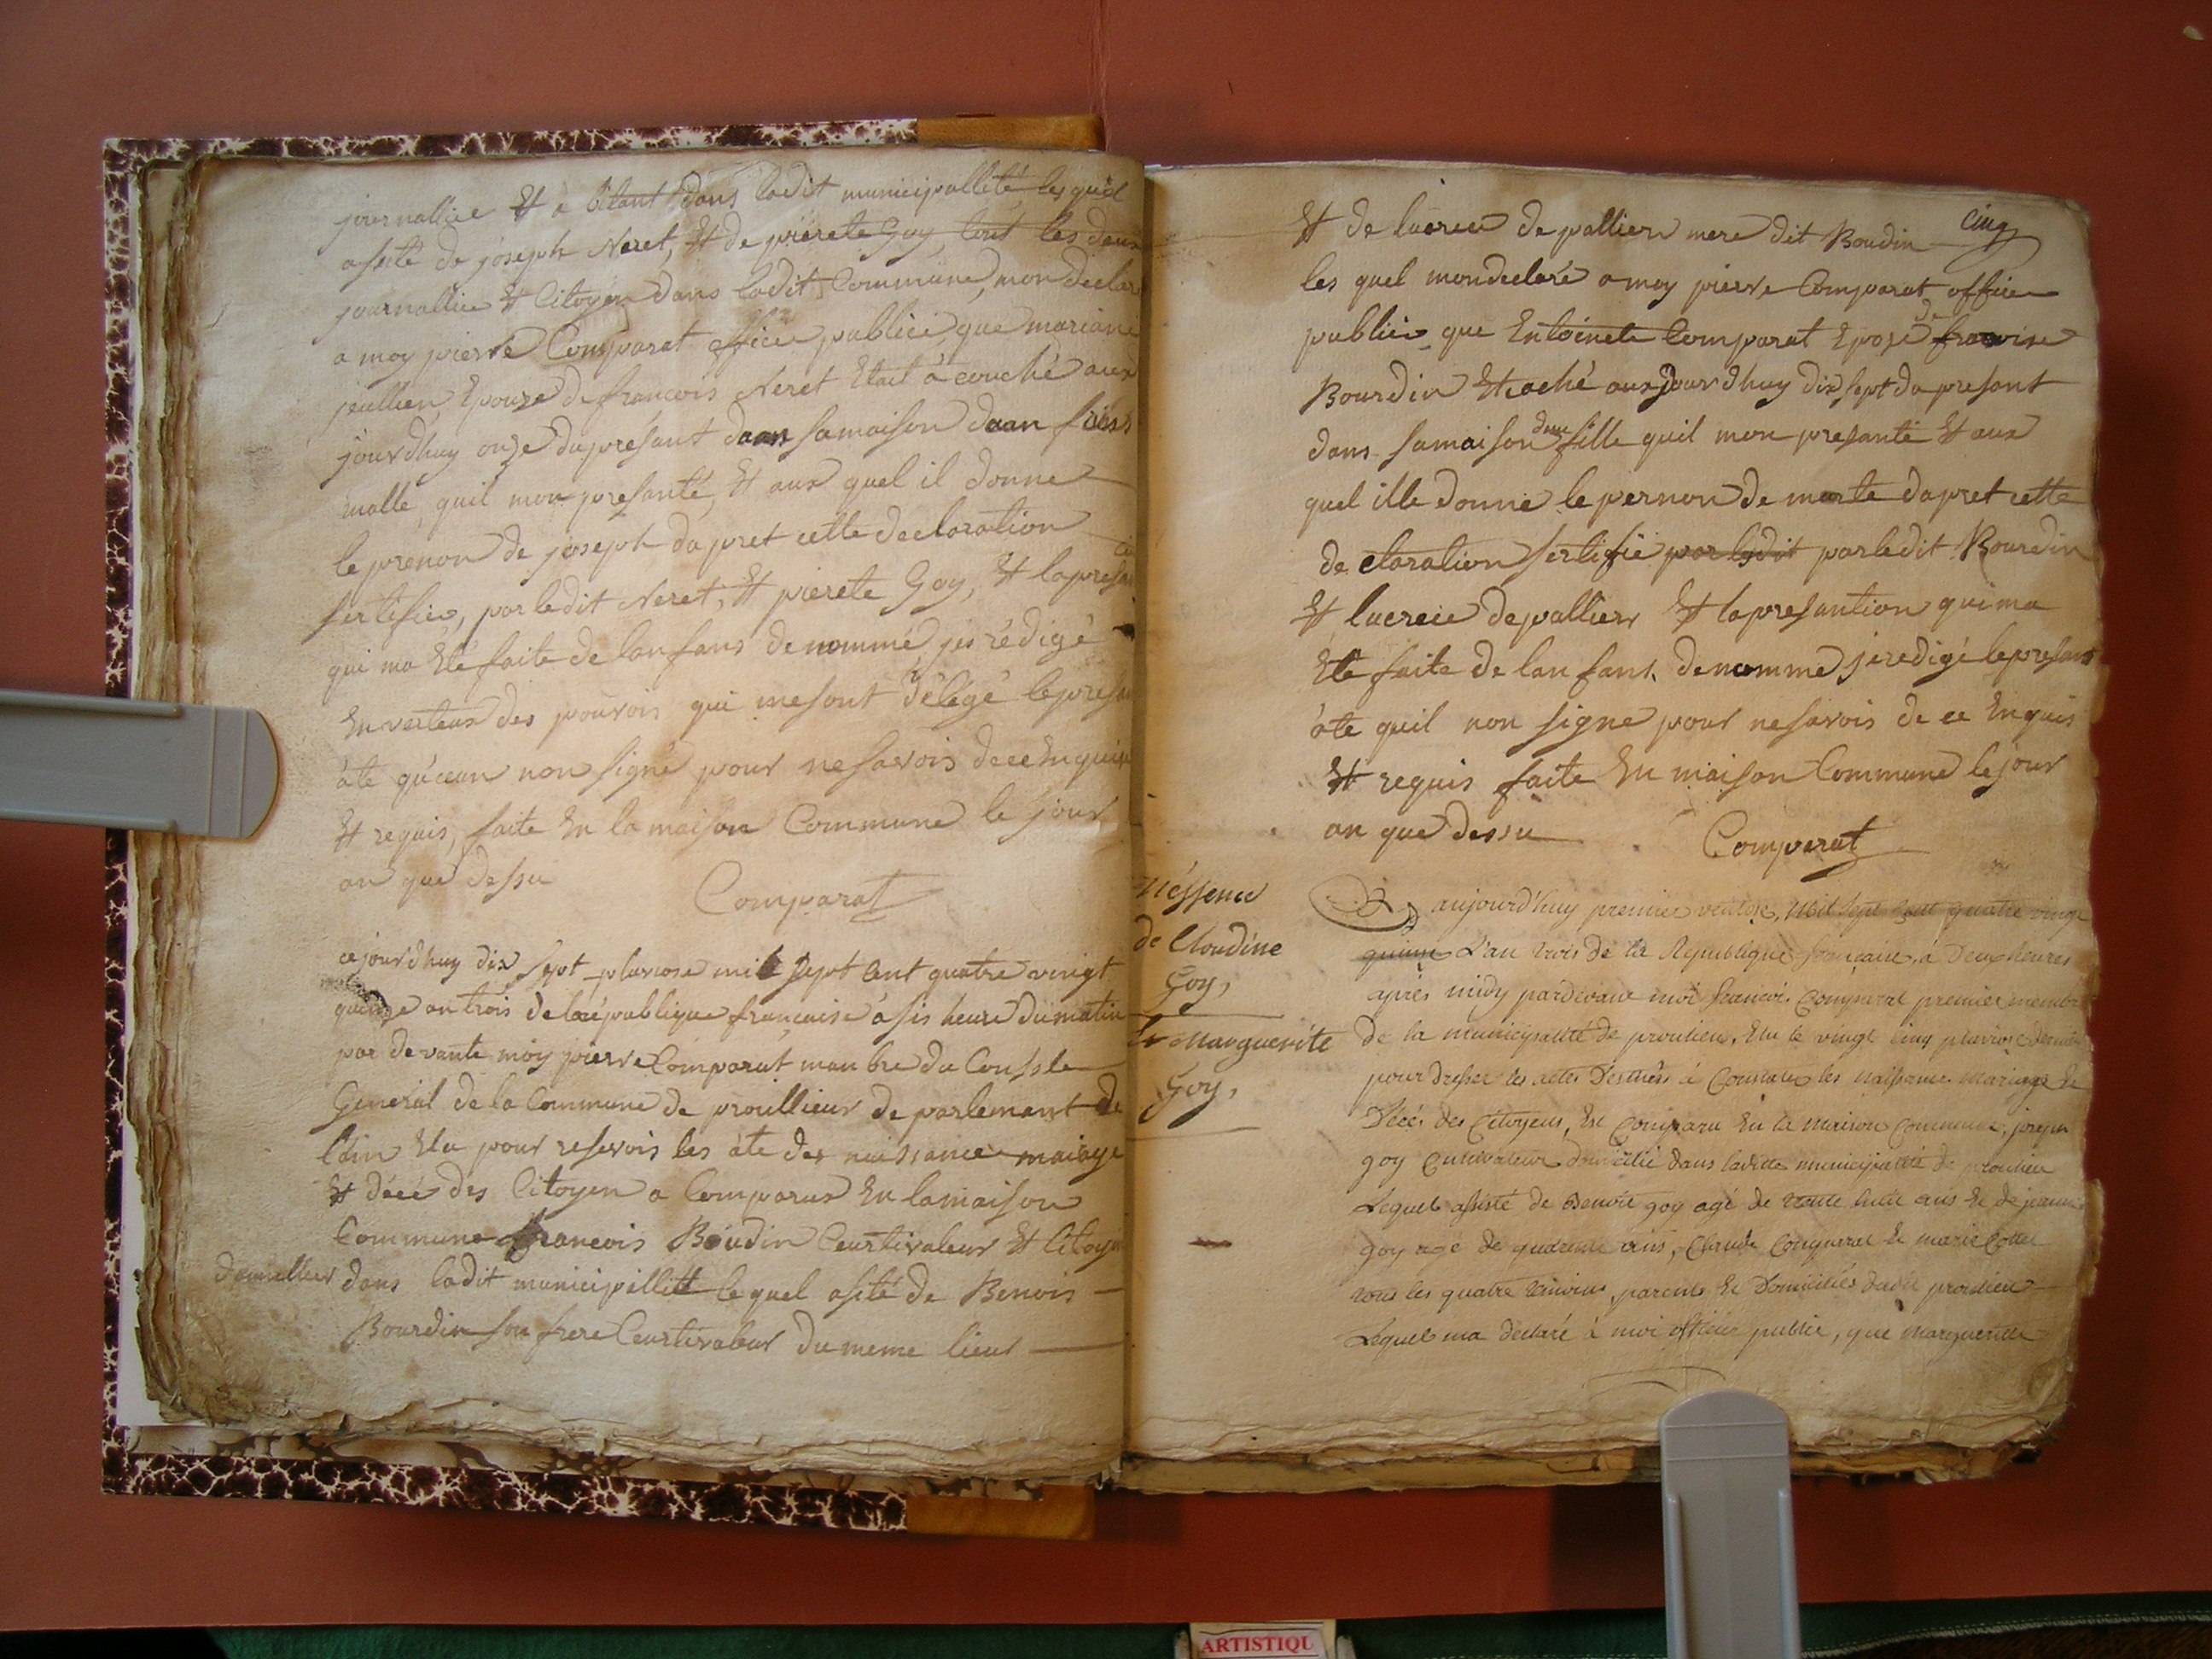 journallier Et a bitant dans ladit municipallité lesquel
asité de joseph Neret, Et de pierete Goy, tout les deux
journallier Et Citoyen dans ladit Commune, mon declaré
a moy pierre Comparat officier publici que mariane
jeullien Epouze de francois Neret Etait a couché aux
jourdhuy onze du presant dans samaison daan
malle, quil mon presanté, Et aux quel il donne
le prenon de joseph dapret cette declaration
sertifier, par ledit Neret, Et pierete Goy, Et lapresan
qui ma Eté faite de lanfans denommé jei rédigé
En verteux des pouvoir qui mesont délégé lepresan
ate non signé pour ne savois de ce Enquis
Et requis, faite En la maison Commune le jour
an que dessu
Comparat
ce jourdhuy dix sept pluviose mil sept cent quatre vingt
quinze an trois de larépublique francaise a sis heure du matin
par devante moy pierre Comparat manbre du Consele
General de la Commune de prouillieux de parlemant de
lain Elu pour resevois les ate des naissance mariage
Et décé des Citoyen a Comparus En lamaison
Commune francois Boudin Ceurtivateur Et Citoyen
domellier dans ladit municipillité lequel asité de Benois
Bourdin son frere Ceurtivateur du meme lieux
cinq
Et de lucreee depallier mere dit Boudin
les quel mondeclaré a moy pierre Comparat officier
publici que Entoinete Comparat Epoze de francoise
Bourdin Et coché aux jourdhuy dix sept du presant
dans samaison dune fille quil mon presanté Et aux
quel ille donne le pernon de marte dapret cette
declaration sertifié par ledit par ledit Bourdin
Et lucreie depallier Et lapresantion qui ma
Eté faite de lanfans denommé jeredigé lepresant
ate quil non signe pour nesavois de ce Enquis
Et requis faite En maison Commune le jour
an que dessu
Comparat
Néssence
de Cloudine
Goy,
Et Marguerite
Goy,
aujourd'huy premier ventose, Mil sept cent quatre vingt
quinze L'an trois de la République française, à Deux heures
après midy pardevant moi françois Comparat premier membre
de la municipalité de proulieu, Elu le vingt cinq pluviose dernier
pour dresser les actes destinés à Constater les naissances mariage Et
Décés des Citoyens, Est Comparu En la maison Commune, joseph
goy Cultivateur domicilié dans laditte municipalité de proulieu
Lequel assisté de Benoit goy agé de trente huit ans Et de jeanne
goy agé de quarente ans, Claude Comparat Et marie
tous les quatre témoins, parents Et Domiciliés dudit proulieu
Lequel ma déclaré à moi officier public, que Marguerite
ARTISTIQU